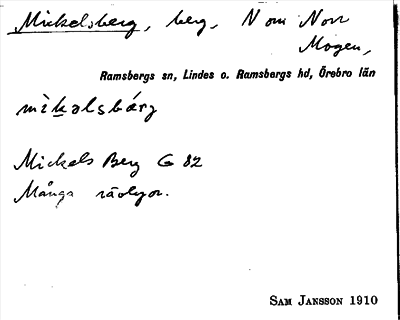 Mickelsberg, berg, N om Norr
Mogen,
Ramsbergs sn, Lindes o. Ramsbergs hd, Örebro län
mìkəlsbárj
Mickels Berg G 82
Många rävlyor.
SAM JANSSON 1910